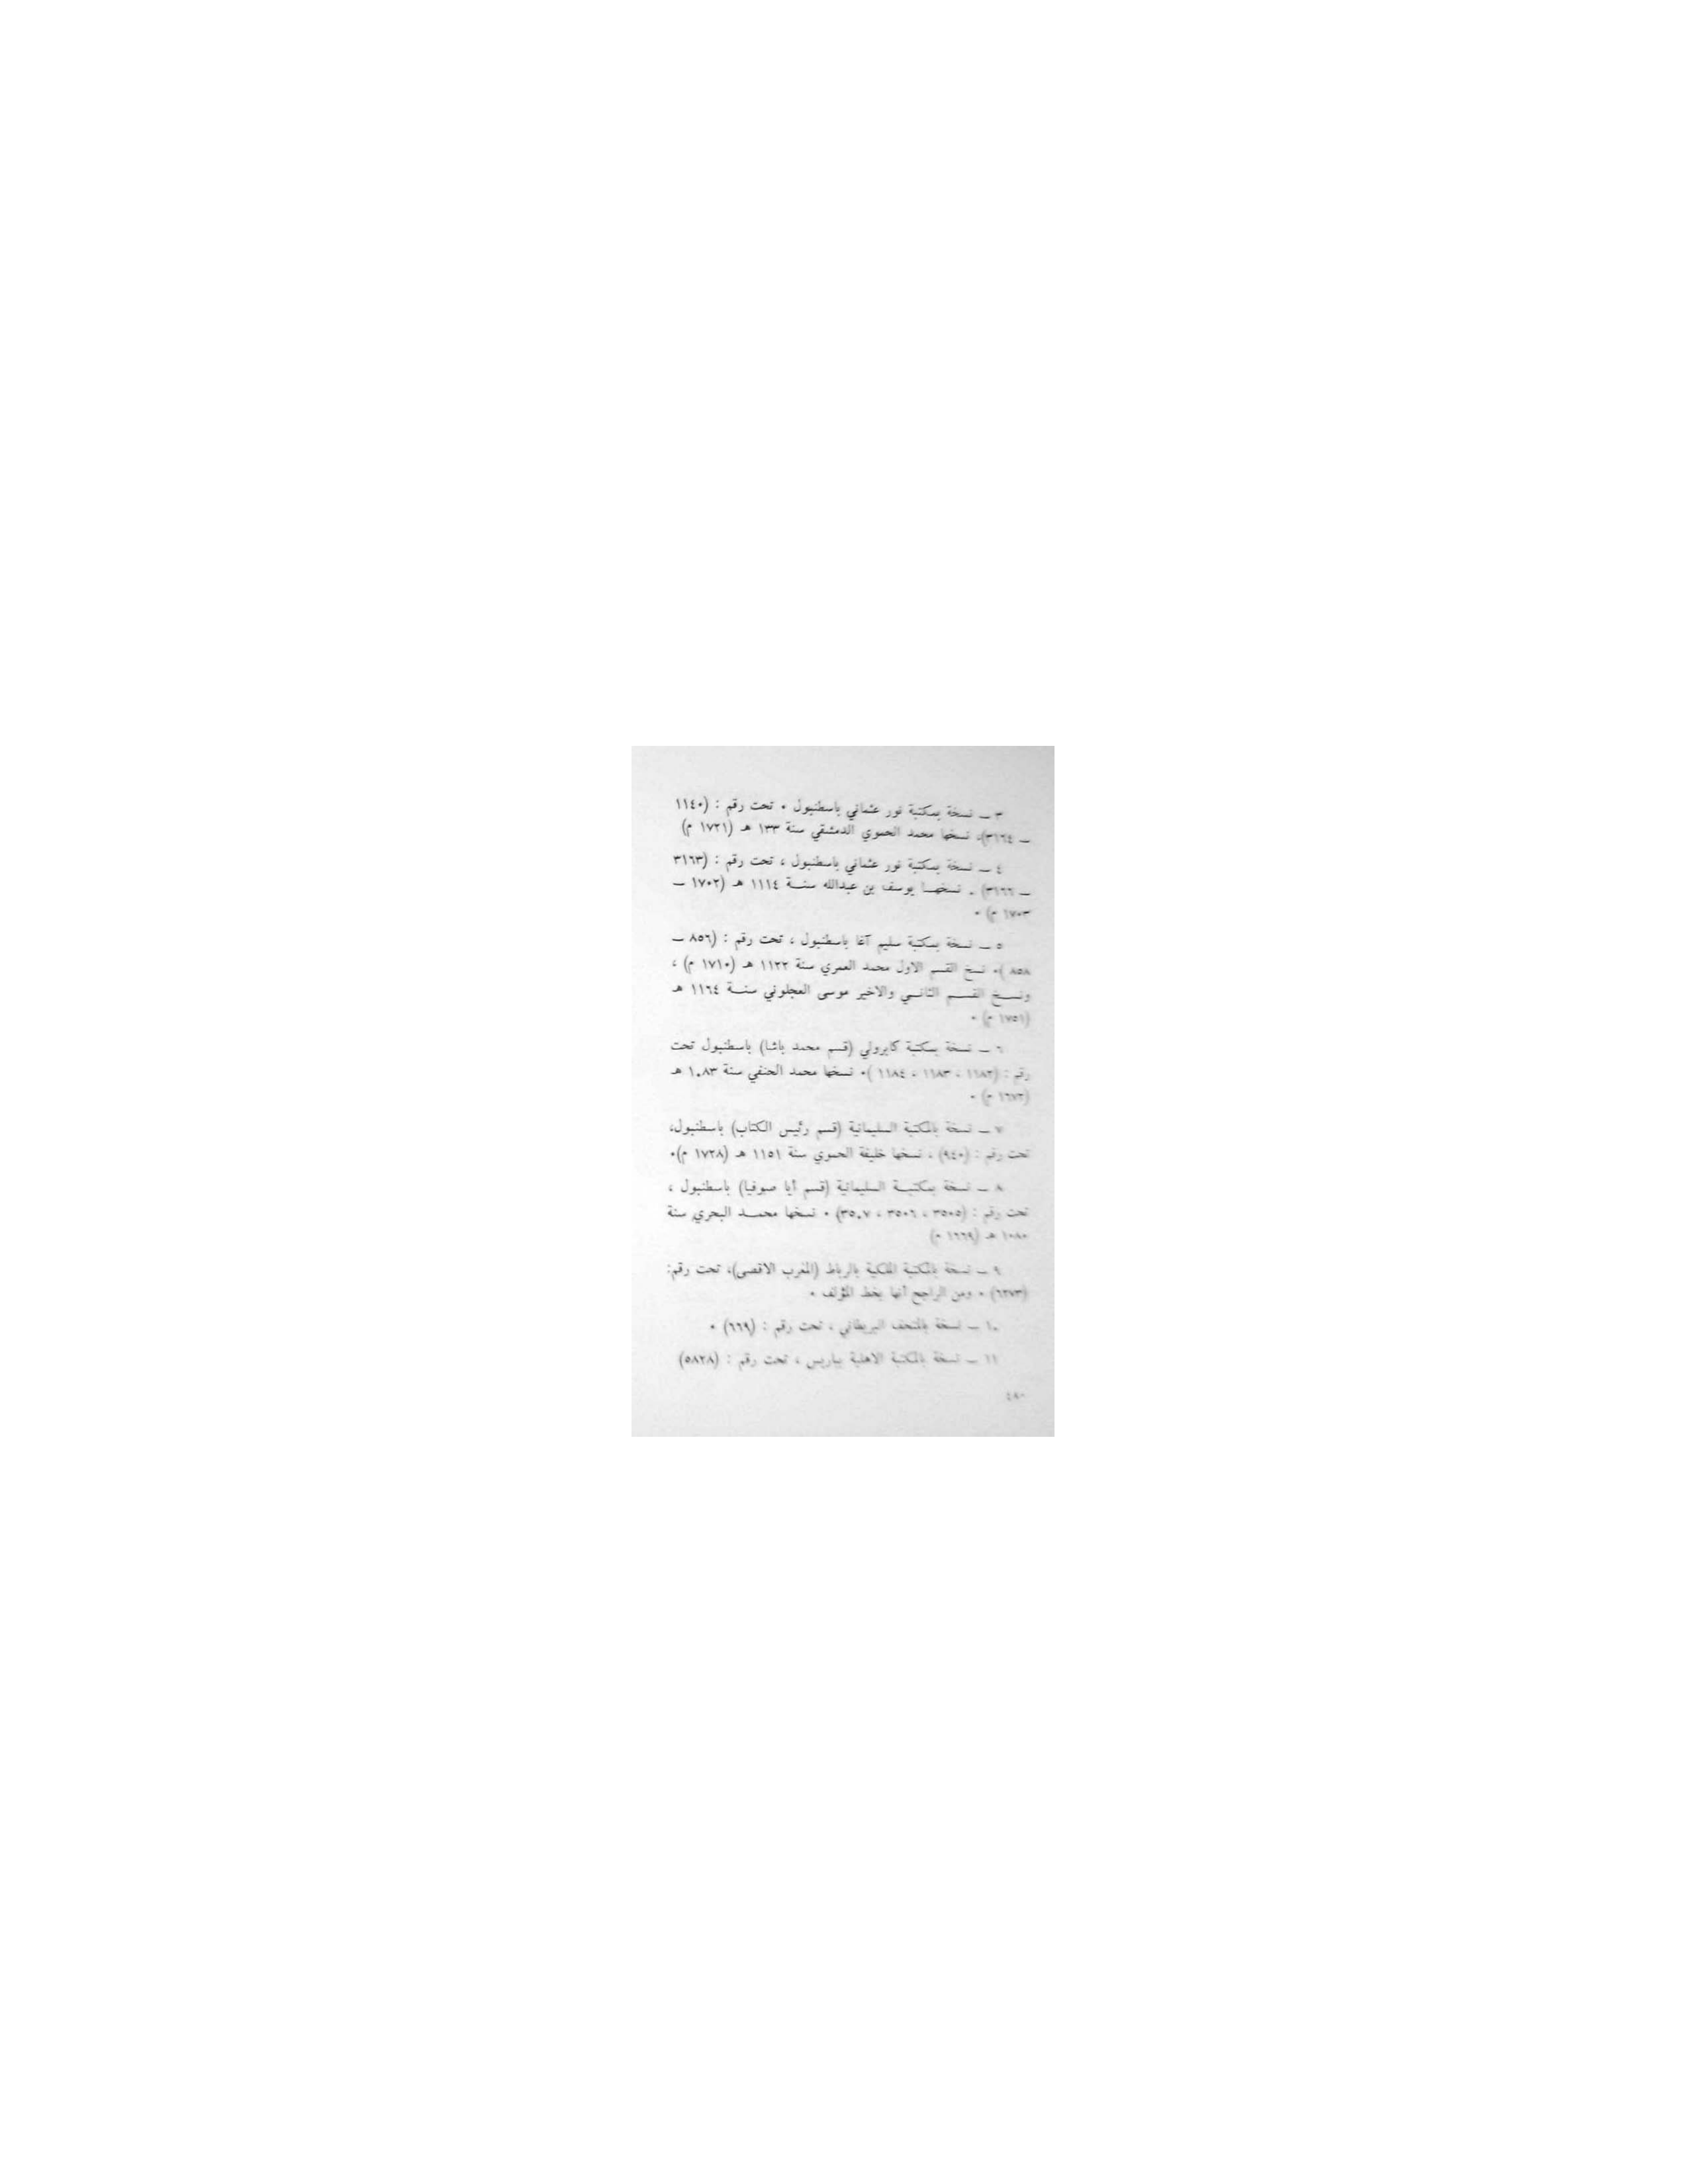 ٣ ــ نسخة بمكتبة نور عثماني باسطنبول ٠ تحت رقم : (١١٤٠
ــ ٣١٦٤)، نسخها محمد الحموي الدمشقي سنة ١٣٣ هـ (١٧٢١ م)
٤ ــ نسخة بمكتبة نور عثماني باسطنبول ، تحت رقم : (٣١٦٣
ــ ٣١٦٦) . نسخهـا يوسف بن عبدالله سنـة ١١١٤ هـ (١٧٠٢ ــ
١٧٠٣ م) ٠
٥ ــ نسخة بمكتبة سليم آغا باسطنبول ، تحت رقم : (٨٥٦ ــ
٨٥٨ )٠ نسخ القسم الاول محمد العمري سنة ١١٢٢ هـ (١٧١٠ م) ،
ونسـخ القسـم الثانـي والاخير موسى العجلوني سنـة ١١٦٤ هـ
(١٧٥١ م) ٠
٦ ــ نسخة بمكتبة كابرولي (قسم محمد باشا) باسطنبول تحت
رقم : (١١٨٢ ، ١١٨٣ ، ١١٨٤ )٠ نسخها محمد الحنفي سنة ١٠٨٣ هـ
(١٦٧٢ م) ٠
٧ ــ نسخة بالمكتبة السليمانية (قسم رئيس الكتاب) باسطنبول،
تحت رقم : (٩٤٠) ، نسخها خليفة الحموي سنة ١١٥١ هـ (١٧٢٨ م)٠
٨ ــ نسخة بمكتبـة السليمانية (قسم أيا صوفيا) باسطنبول ،
تحت رقم : (٣٥٠٥ ، ٣٥٠٦ ، ٣٥٠٧) ٠ نسخها محمـد البحري سنة
١٠٨٠ هـ (١٦٦٩ م)
٩ ــ نسخة بالمكتبة الملكية بالرباط (المغرب الاقصى)، تحت رقم:
(٦٢٧٣) ٠ ومن الراجح أنها بخط المؤلف ٠
١٠ ــ نسخة بالمتحف البريطاني ، تحت رقم : (٦٦٩) ٠
١١ ــ نسخة بالمكتبة الاهلية بباريس ، تحت رقم : (٥٨٢٨)
٤٩٠